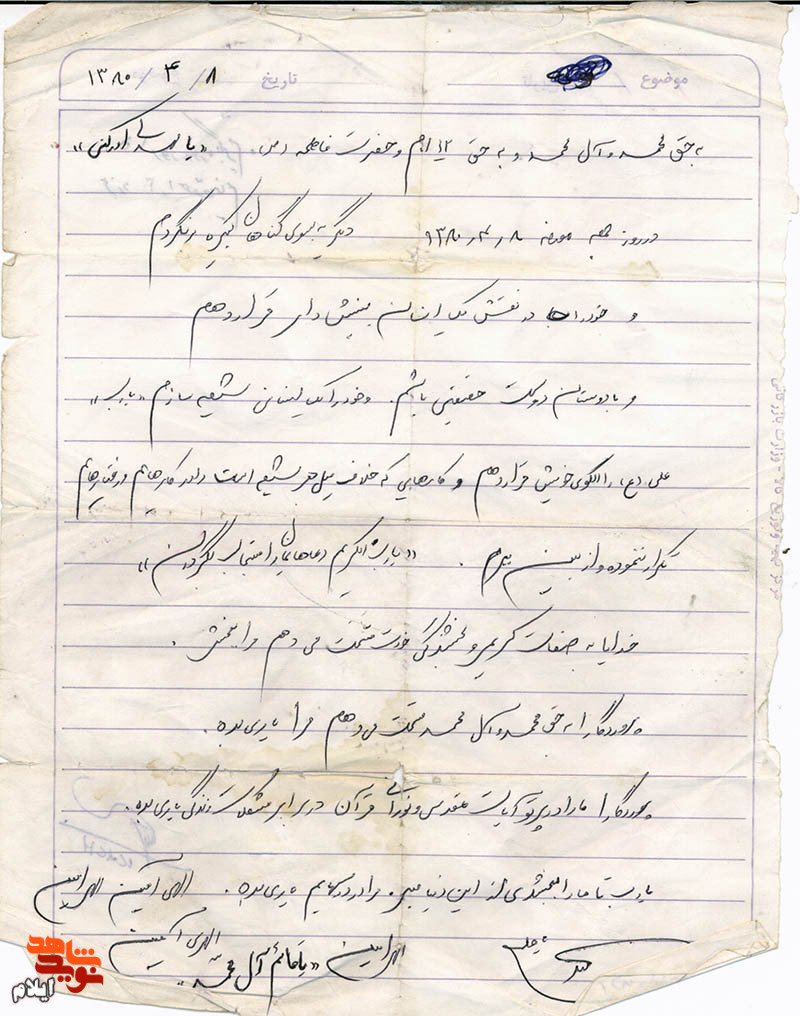 موضوع تاریخ ۱۳۸۰/۴/۸
به حق محمد و آل محمد و به حق ۱۲ امام و حضرت فاطمه (س). «یا مهدی ادرکنی»
در روز جمعه مورخه ۸ر۴ر۱۳۸۰ دیگر به سوی گناهان کبیره برنگردم
و خود را در نقش یک انسان بینش دار قرار دهم
و با دوستان دوست حقیقی باشم. و خود را یک انسان شیعه سازم «یارب»
علی (ع) را الگوی خویش قرار دهم و کارهایی که خلاف میل هر شیعه است را در کارهایم و رفتارهایم
تکرار ننموده و از بین ببرم. «یارب الکریم دعاهایمان را مستجاب بگردان»
خدایا به صفات کریمی و بخشندگی خودت قسمت می دهم مرا ببخش.
پروردگارا به حق محمد و آل محمد قسمت می دهم مرا یاری بده.
پروردگارا ما را در پرتو آیات مقدس و نورانی قرآن در برابر مشکلات زندگی یاری بده.
یارب تا ما را نبخشیدی از این دنیا مبر. مرا در کارهایم یاری بده. الهی آمین الهی آمین
الهی آمین «یا قائم آل محمد» الهی آمین
شاهد
نوید
ایلام